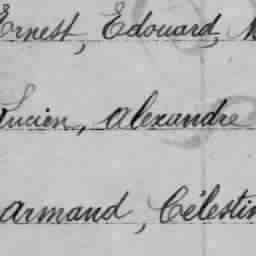 Ernest, Edouard,
Lucien, Alexandre
Armand, Célestin